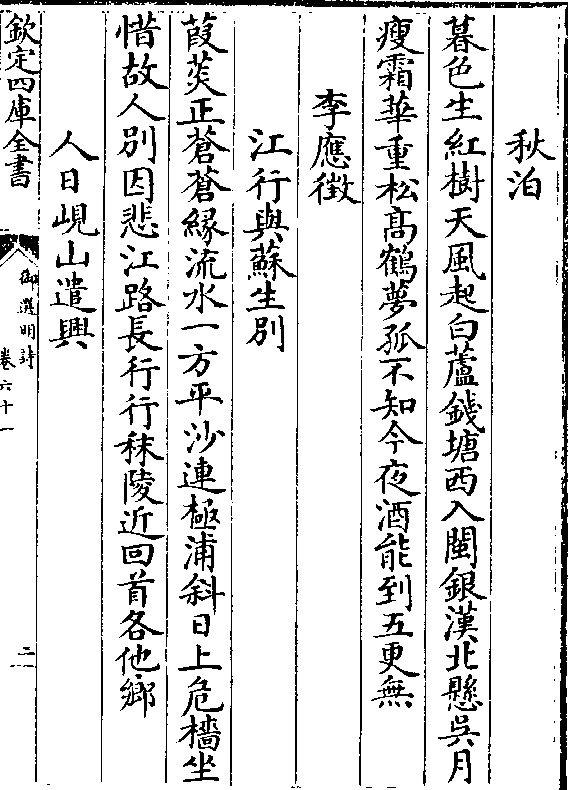 秋泊
暮色生紅樹天風起白蘆錢塘西入閩銀漢北懸吳月
瘦霜華重松髙鶴夢孤不知今夜酒能到五更無
李應徴
江行與蘇生別
葭菼正蒼蒼縁流水一方平沙連極浦斜日上危檣坐
惜故人別因悲江路長行行秣陵近回首各他鄉
人日峴山遣興
欽定四庫全書
御選明詩
卷六十一
二